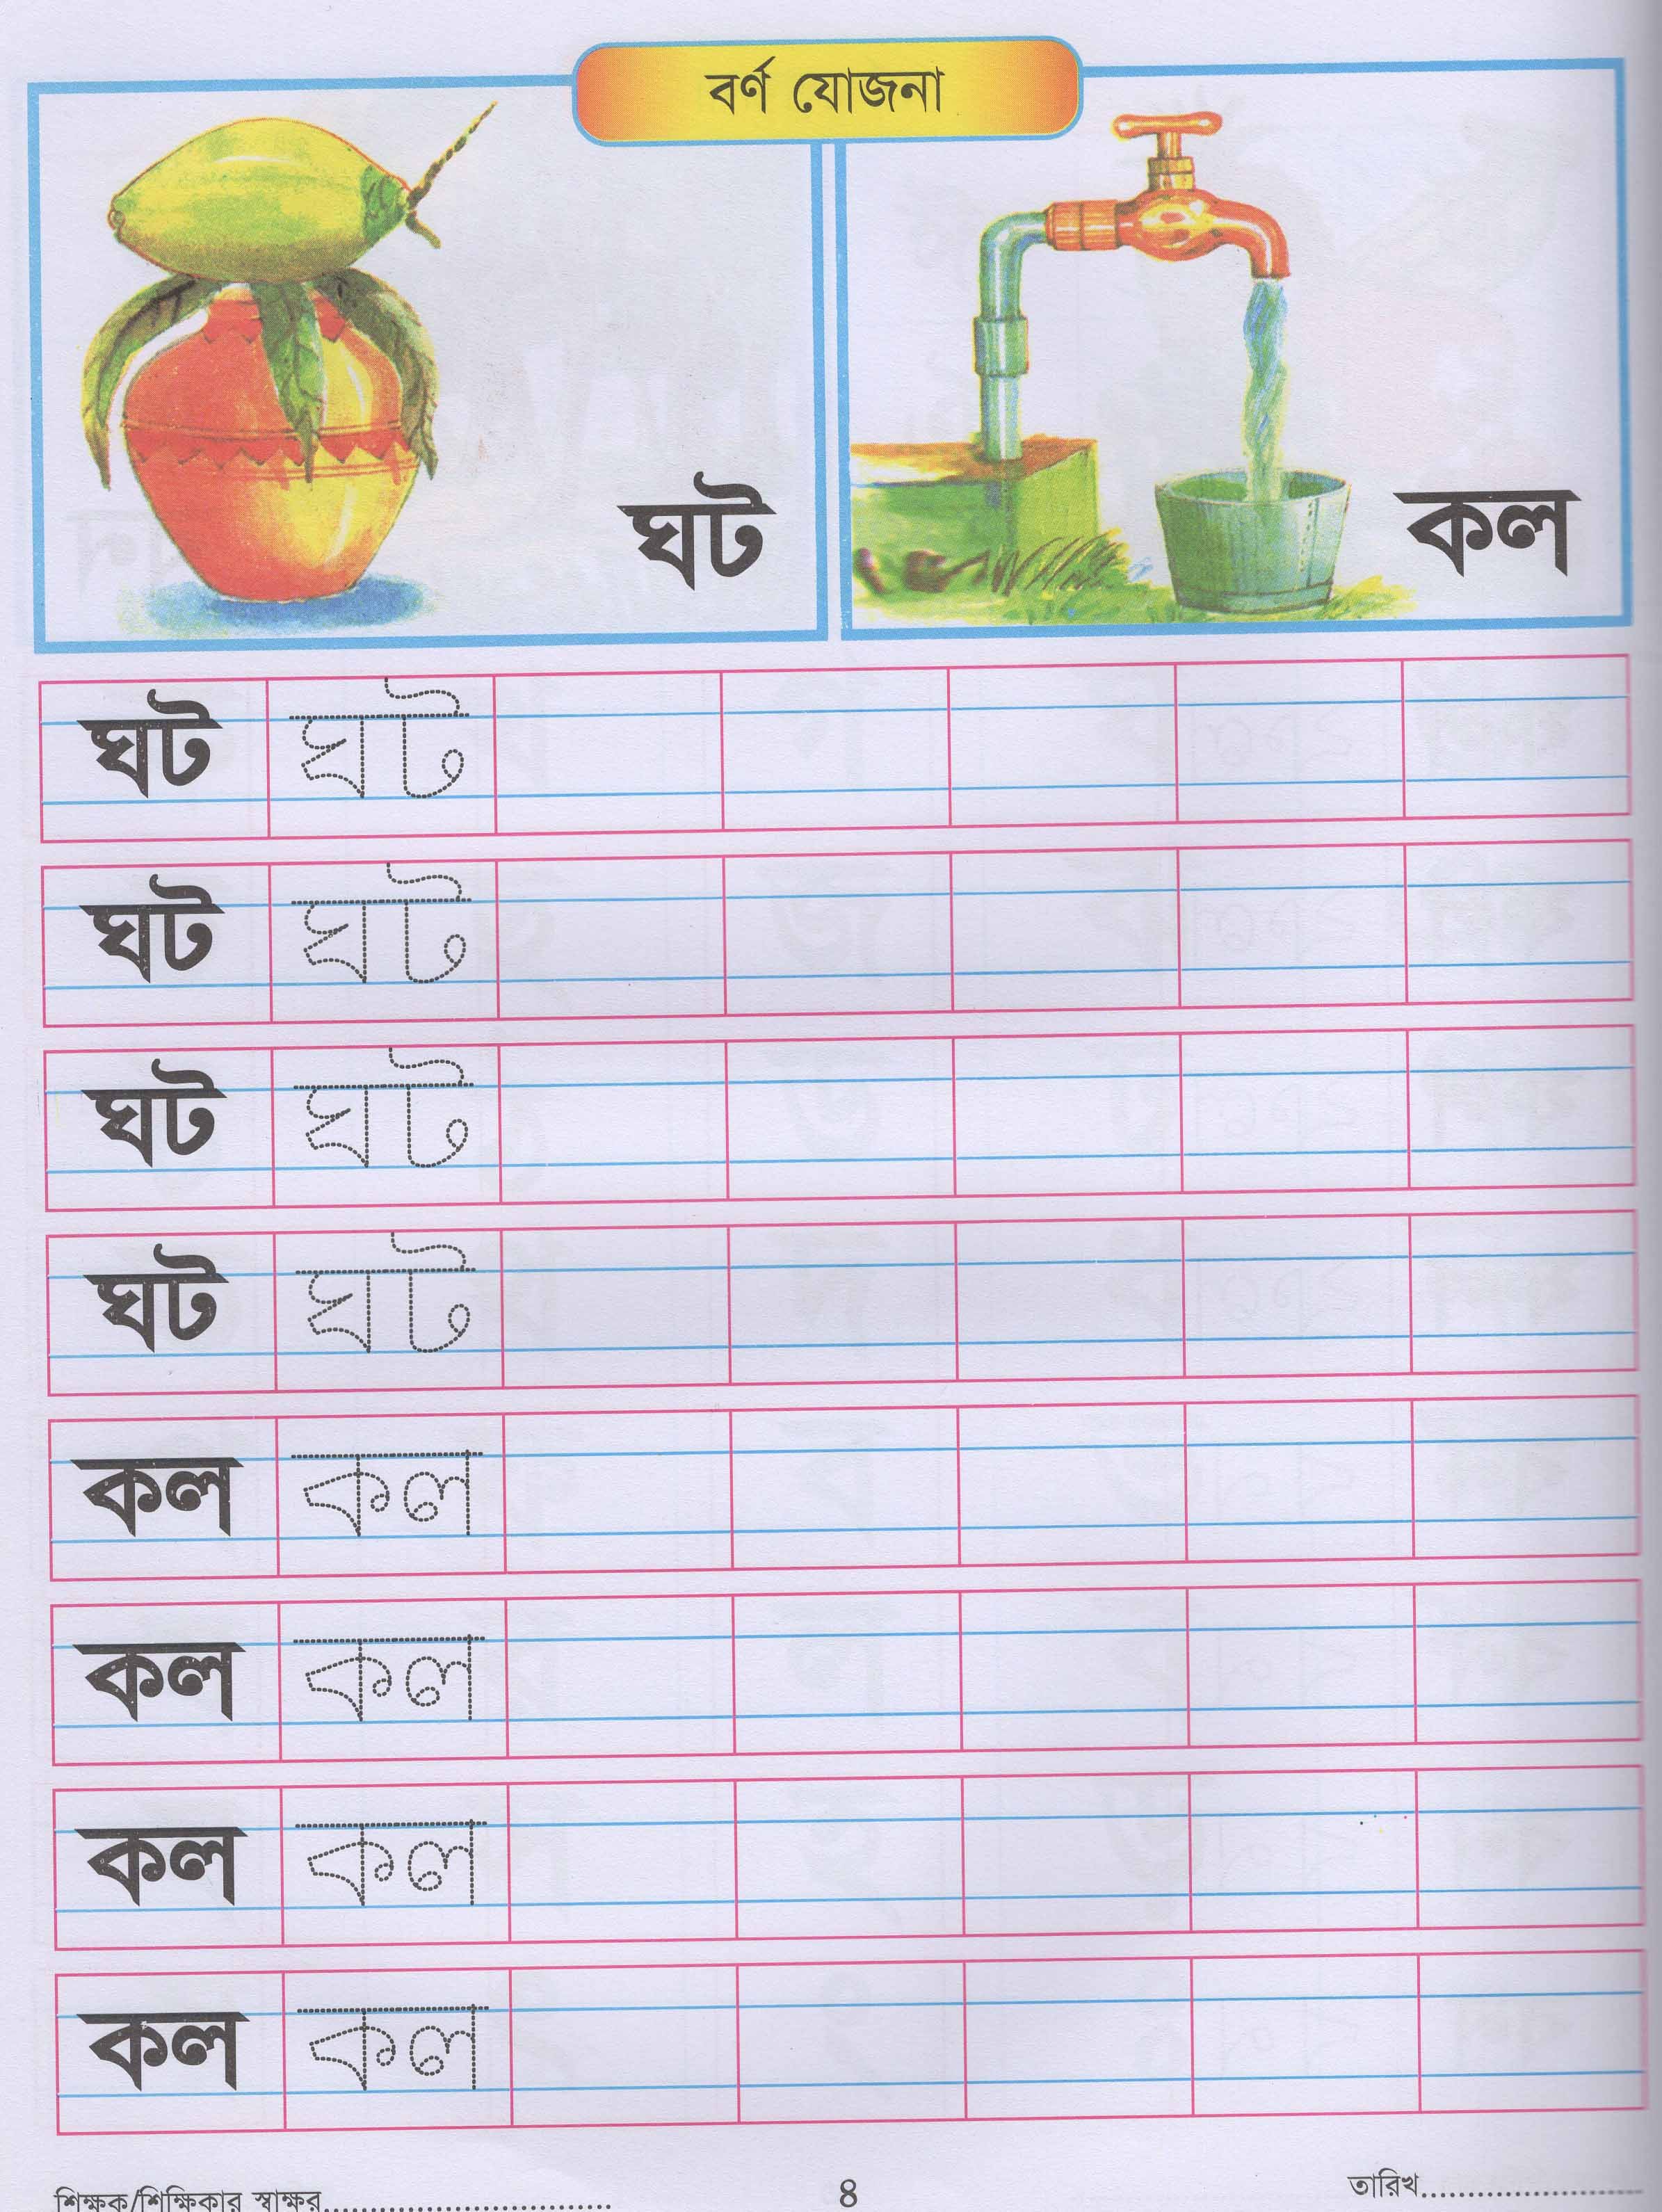 বর্ণ যোজনা
ঘট
কল
ঘট ঘট
ঘট ঘট
ঘট ঘট
ঘট ঘট
কল কল
কল কল
কল কল
কল কল
শিক্ষক/শিক্ষিকার স্বাক্ষর.............................. ৪ তারিখ........................